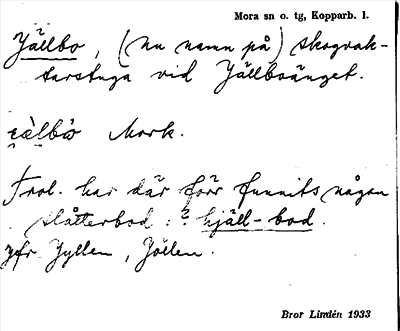 Mora sn o. tg, Kopparb. l.
Jällbo, (nu namn på) skogvak-
tarstuga vid Jällboänget.
Mork.
Trol. har där förr funnits någon
slåtterbod: ? hjäll-bod.
jfr Jyllen, Jöllen.
Bror Lindén 1933